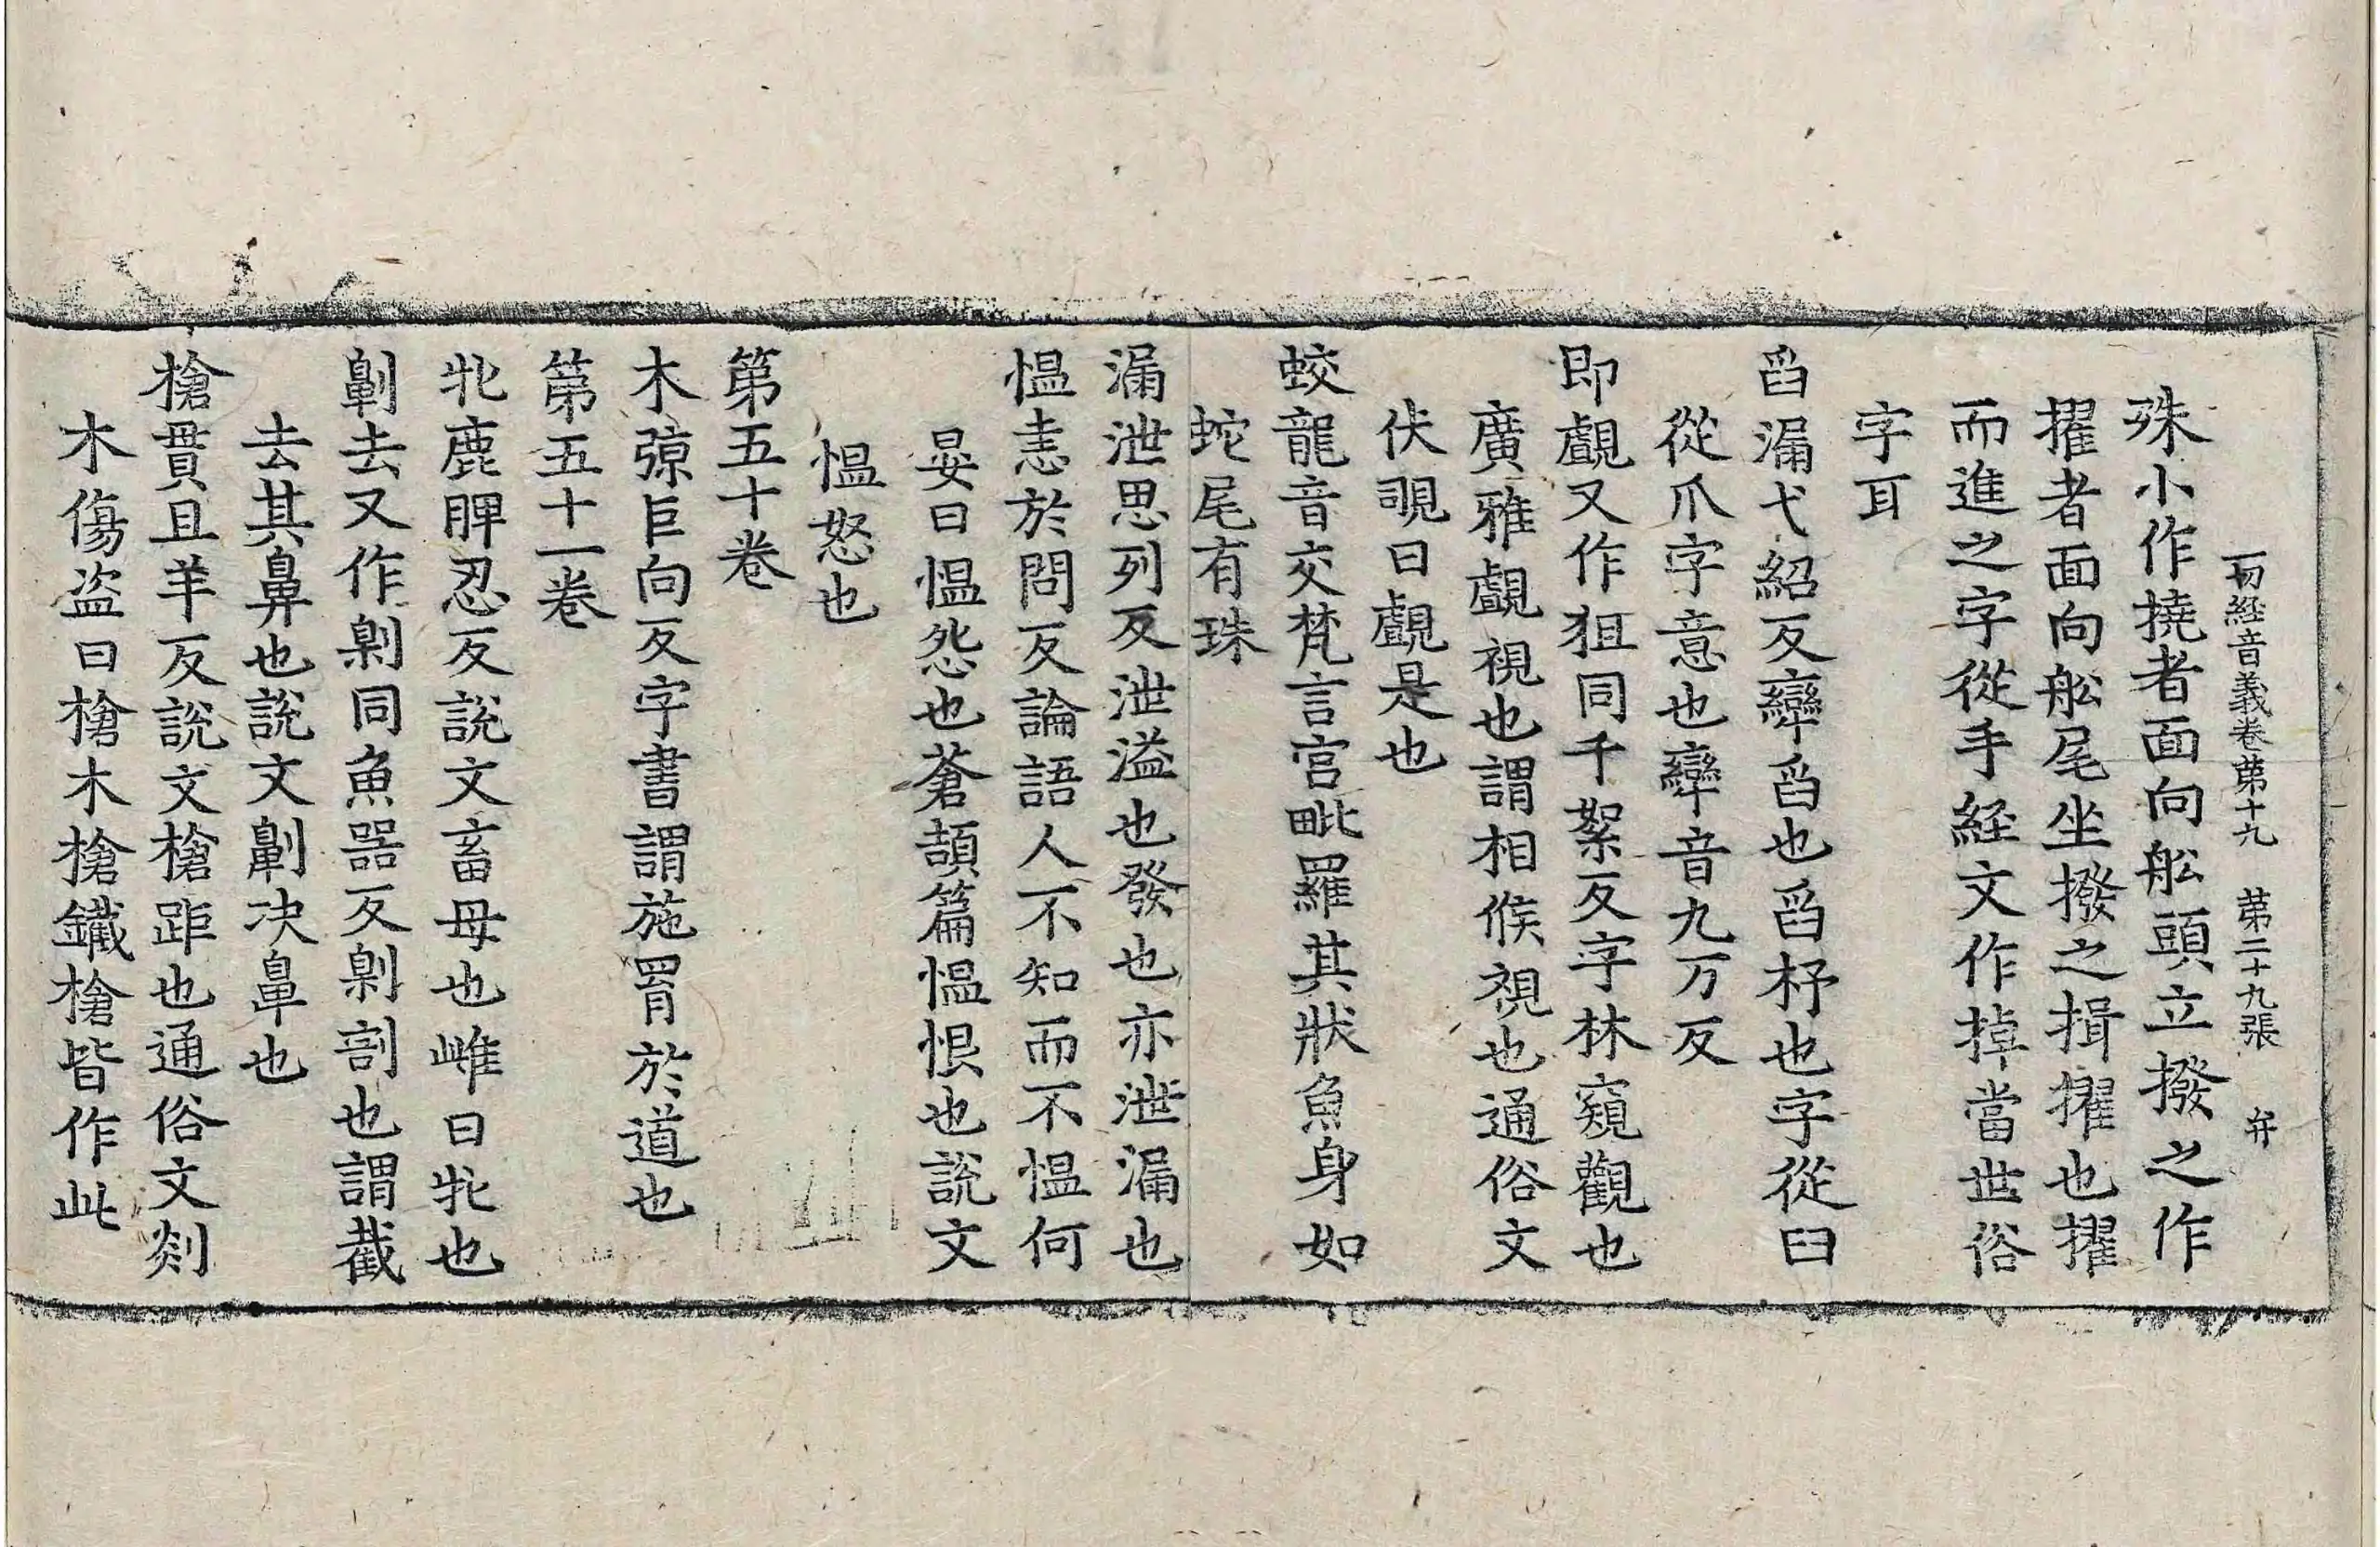 一切経音義卷第十九　第二十九張　弁
殊小作撓者面向舩頭立撥之作
擢者面向舩尾坐撥之揖擢也擢
而進之字從手経文作掉當世俗
字耳
舀漏弋紹反㪻舀也舀杼也字從臼
從爪字意也㪻音九万反
即覰又作狙同千絮反字林窺觀也
廣雅覰視也謂相候視也通俗文
伏覗曰覰是也
蛟龍音交梵言宫毗羅其狀魚身如
蛇尾有珠
漏泄思列反泄溢也發也亦泄漏也
愠恚於問反論語人不知而不愠何
晏曰愠怨也蒼頡篇愠恨也說文
愠怒也
第五十卷
木弶巨向反字書謂施罥於道也
第五十一卷
牝鹿脾忍反說文畜母也雌曰牝也
劓去又作劓同魚器反劓割也謂截
去其鼻也說文劓决鼻也
槍貫且羊反說文槍距也通俗文剡
木傷盜曰槍木槍鐵槍皆作此